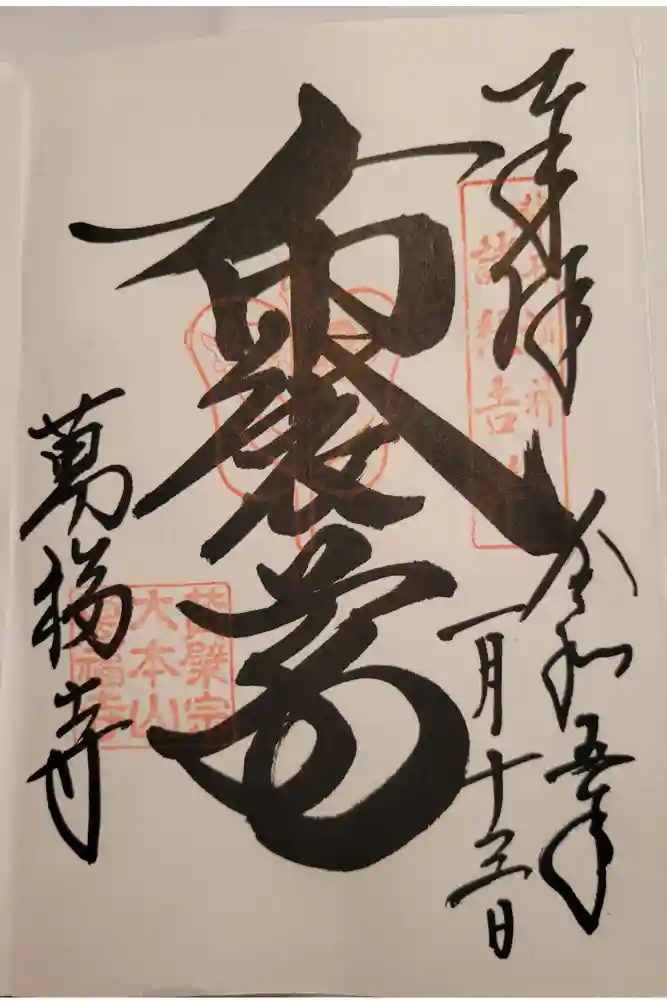 奉拝
令和五年
一月十三日
布袋尊
萬福寺
黄檗宗
大本山
萬福寺